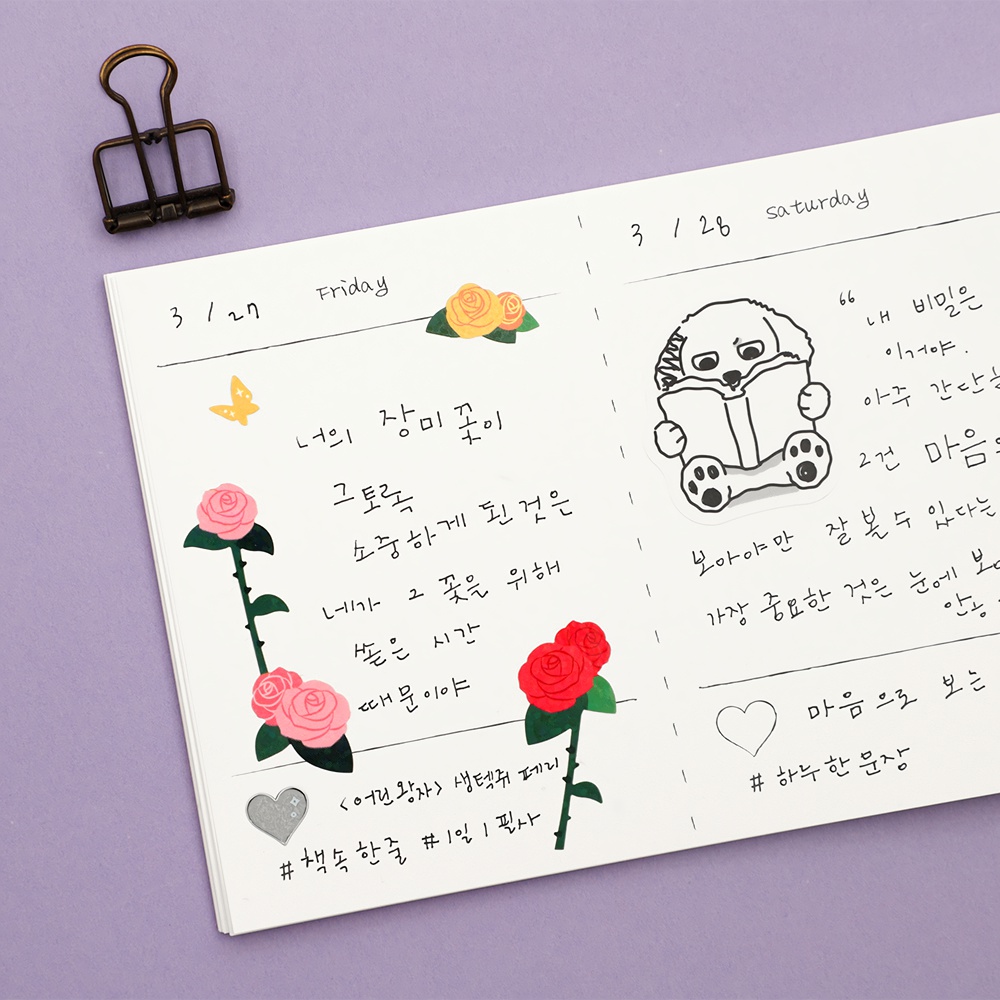 3 / 27 Friday
너의 장미꽃이
그토록
소중하게 된 것은
네가 그 꽃을 위해
쏟은 시간
때문이야
<어린왕자> 생텍쥐페리
#책속한줄 #1일1필사
3 / 28 saturday
“ 내 비밀은
이거야.
아주 간단
그건 마음
보아야만 잘 볼 수 있다는
가장 중요한 것은 눈에
안
마음으로 보는
# 하루한문장